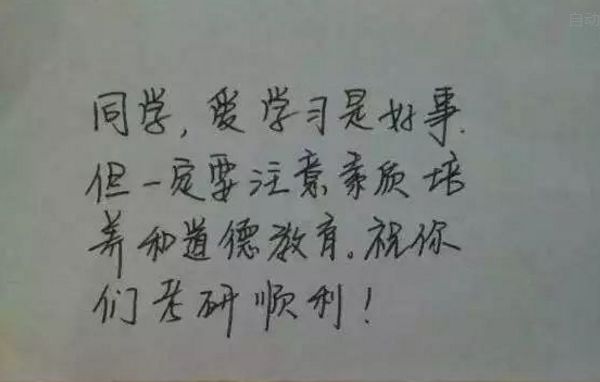 自动
同学，爱学习是好事.
但一定要注意素质培
养和道德教育。祝你
们考研顺利！